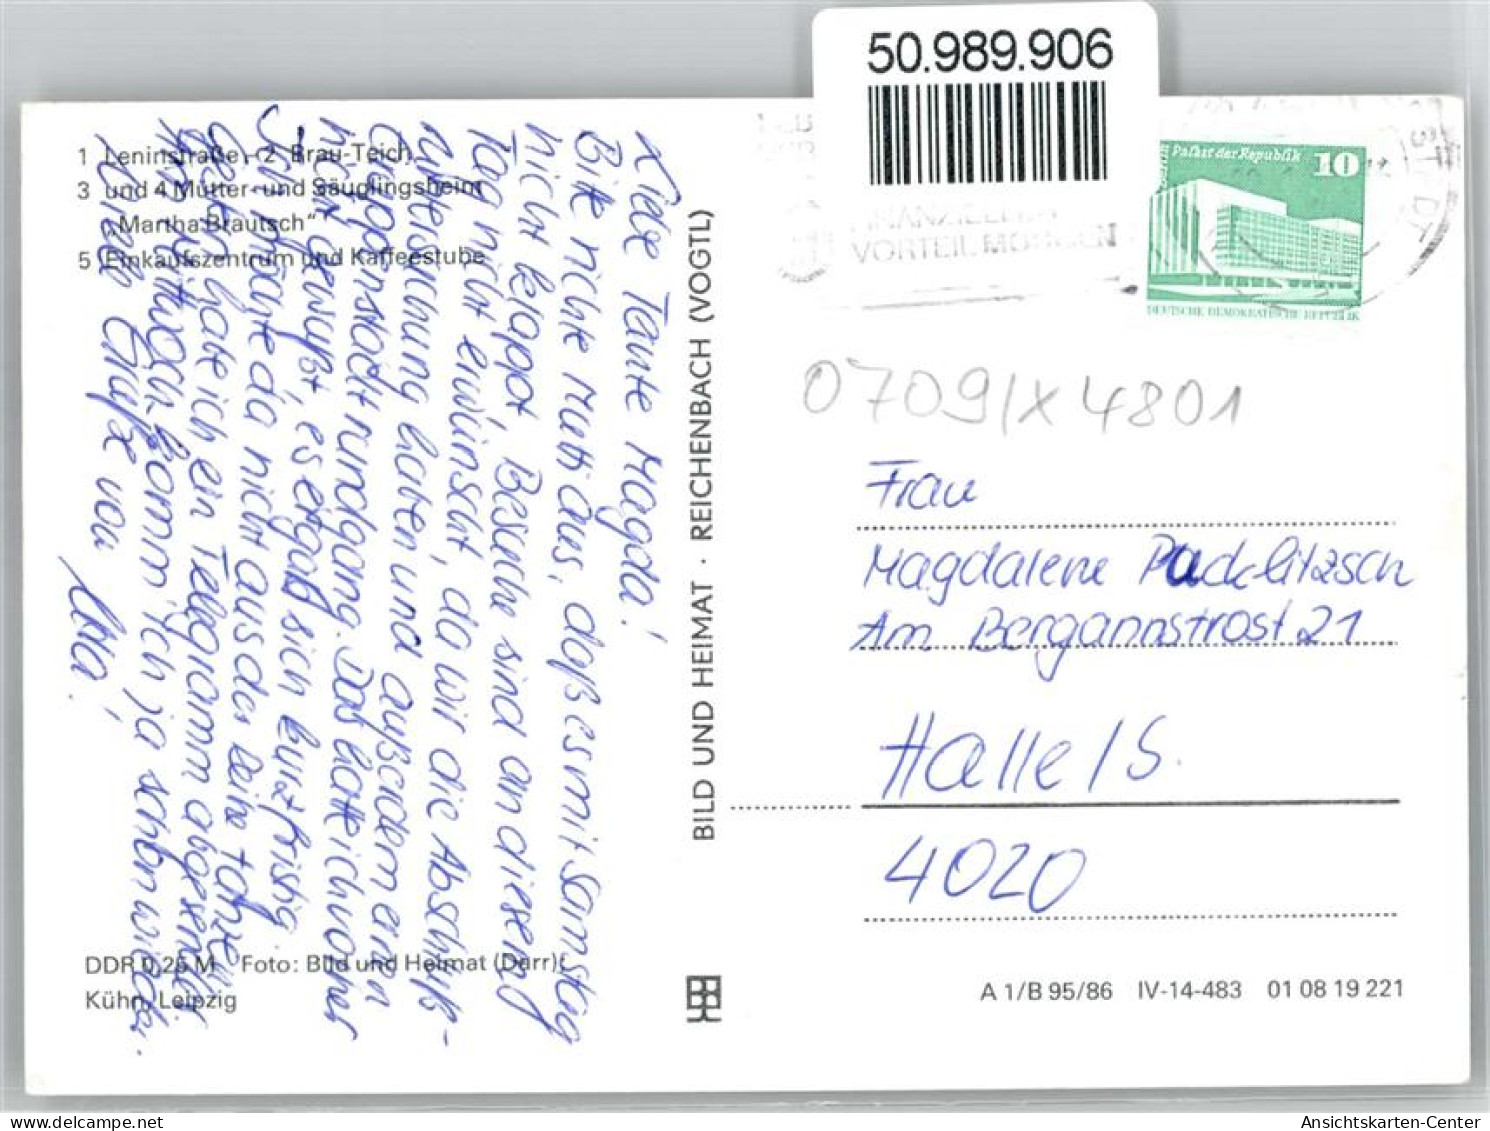 50.989.906
1 Leninstraße - 2 Brau-Teich
3 und 4 Mütter- und Säuglingsheim
„Martha Brautsch"
5 Einkaufszentrum und Kaffeestube
Liebe Tante Magda!
Bitte richte Mutti aus, daß es mit Samstag
nicht klappt. Besuche sind an diesem
Tag nicht erwünscht, da wir die Abschluß-
untersuchung haben und außerdem ein
Gruppenstadtrundgang. Das hatte ich vorher
nicht gewußt, es ergab sich kurzfristig.
Ich konnte da nicht aus der Reihe tanzen
habe ich ein Telegramm abgesendet
Mittwoch komm' ich ja schon wieder.
Liebe Grüße von
Uta!
DDR 0,25 M Foto: Bild und Heimat (Darr);
Kühn, Leipzig
BILD UND HEIMAT · REICHENBACH (VOGTL)
Palast der Republik 10
DEUTSCHE DEMOKRATISCHE REPUBLIK
FINANZIELLER
VORTEIL MORGEN
0709/X 4801
Frau
Magdalene Packlitzsch
Am Bergmannstrost 21
Halle/S.
4020
A 1/B 95/86 IV-14-483 01 08 19 221
Ansichtskarten-Center